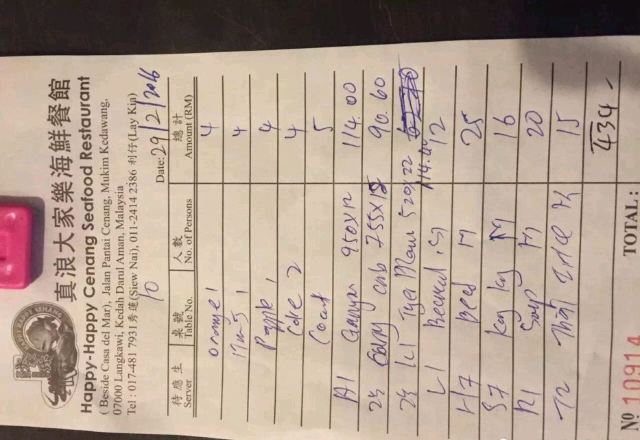 真浪大家樂海鮮餐館
Happy-Happy Cenang Seafood Restaurant
( Beside Casa del Mar), Jalan Pantai Cenang, Mukim Kedawang,
07000 Langkawi, Kedah Darul Aman, Malaysia
Tel : 017-481 7931 秀蓮(Siew Nai), 011-2414 2386 利仔(Lay Kia)
10 Date: 29/2/2016
待應生 桌號 人數 總計
Server Table No. No. of Persons Amount (RM)
orange 1 4
1 4
1 4
Coke 2 4
Coco 5
A1 950x12 114.00
24 755x12 90.60
24 K1 Tiger 520x22 114.40
L1 .S 12
H7 beef M 25
S7 M 16
R1 Soup M 20
T2 Thai M 15
TOTAL : 434 -
Nº 10914